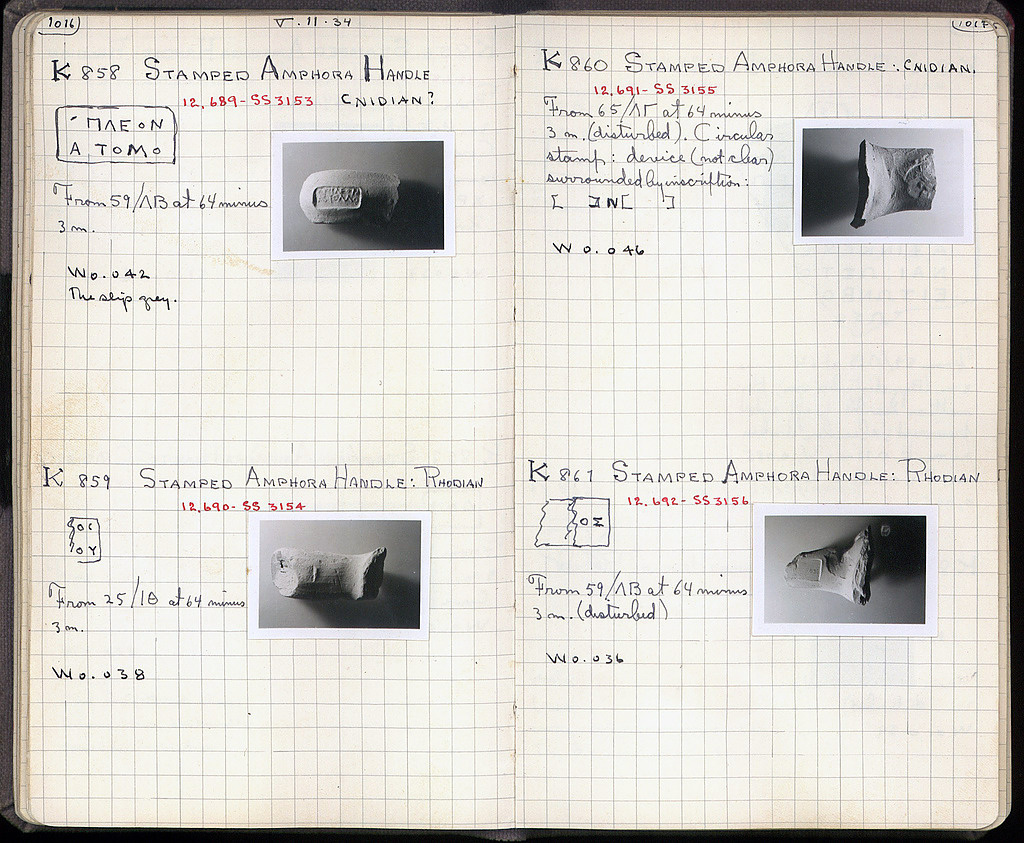 1016
V.11.34
K 858 STAMPED AMPHORA HANDLE
12,689-SS 3153 CNIDIAN?
ΠΛΕΟΝ
Α ΤΟΜΟ
From 59/ΛΒ at 64 minus
3 m.
W 0.042
The slip grey.
K 859 STAMPED AMPHORA HANDLE: RHODIAN
12,690-SS 3154
ΟΥ
From 25/ΙΘ at 64 minus
3 m.
W 0.038
1017
K 860 STAMPED AMPHORA HANDLE: CNIDIAN.
12,691-SS 3155
From 65/ΛΓ at 64 minus
3 m. (disturbed). Circular
stamp: device (not clear)
surrounded by inscription:
[ ]N[ ]
W 0.046
K 861 STAMPED AMPHORA HANDLE: RHODIAN
12,692-SS 3156
ΟΣ
From 59/ΛΒ at 64 minus
3 m. (disturbed)
W 0.036